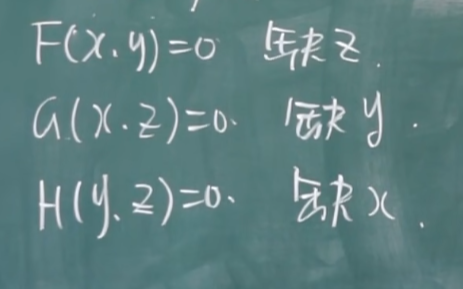 F(x.y)=0 缺z.
G(x.z)=0. 缺y.
H(y.z)=0. 缺x.